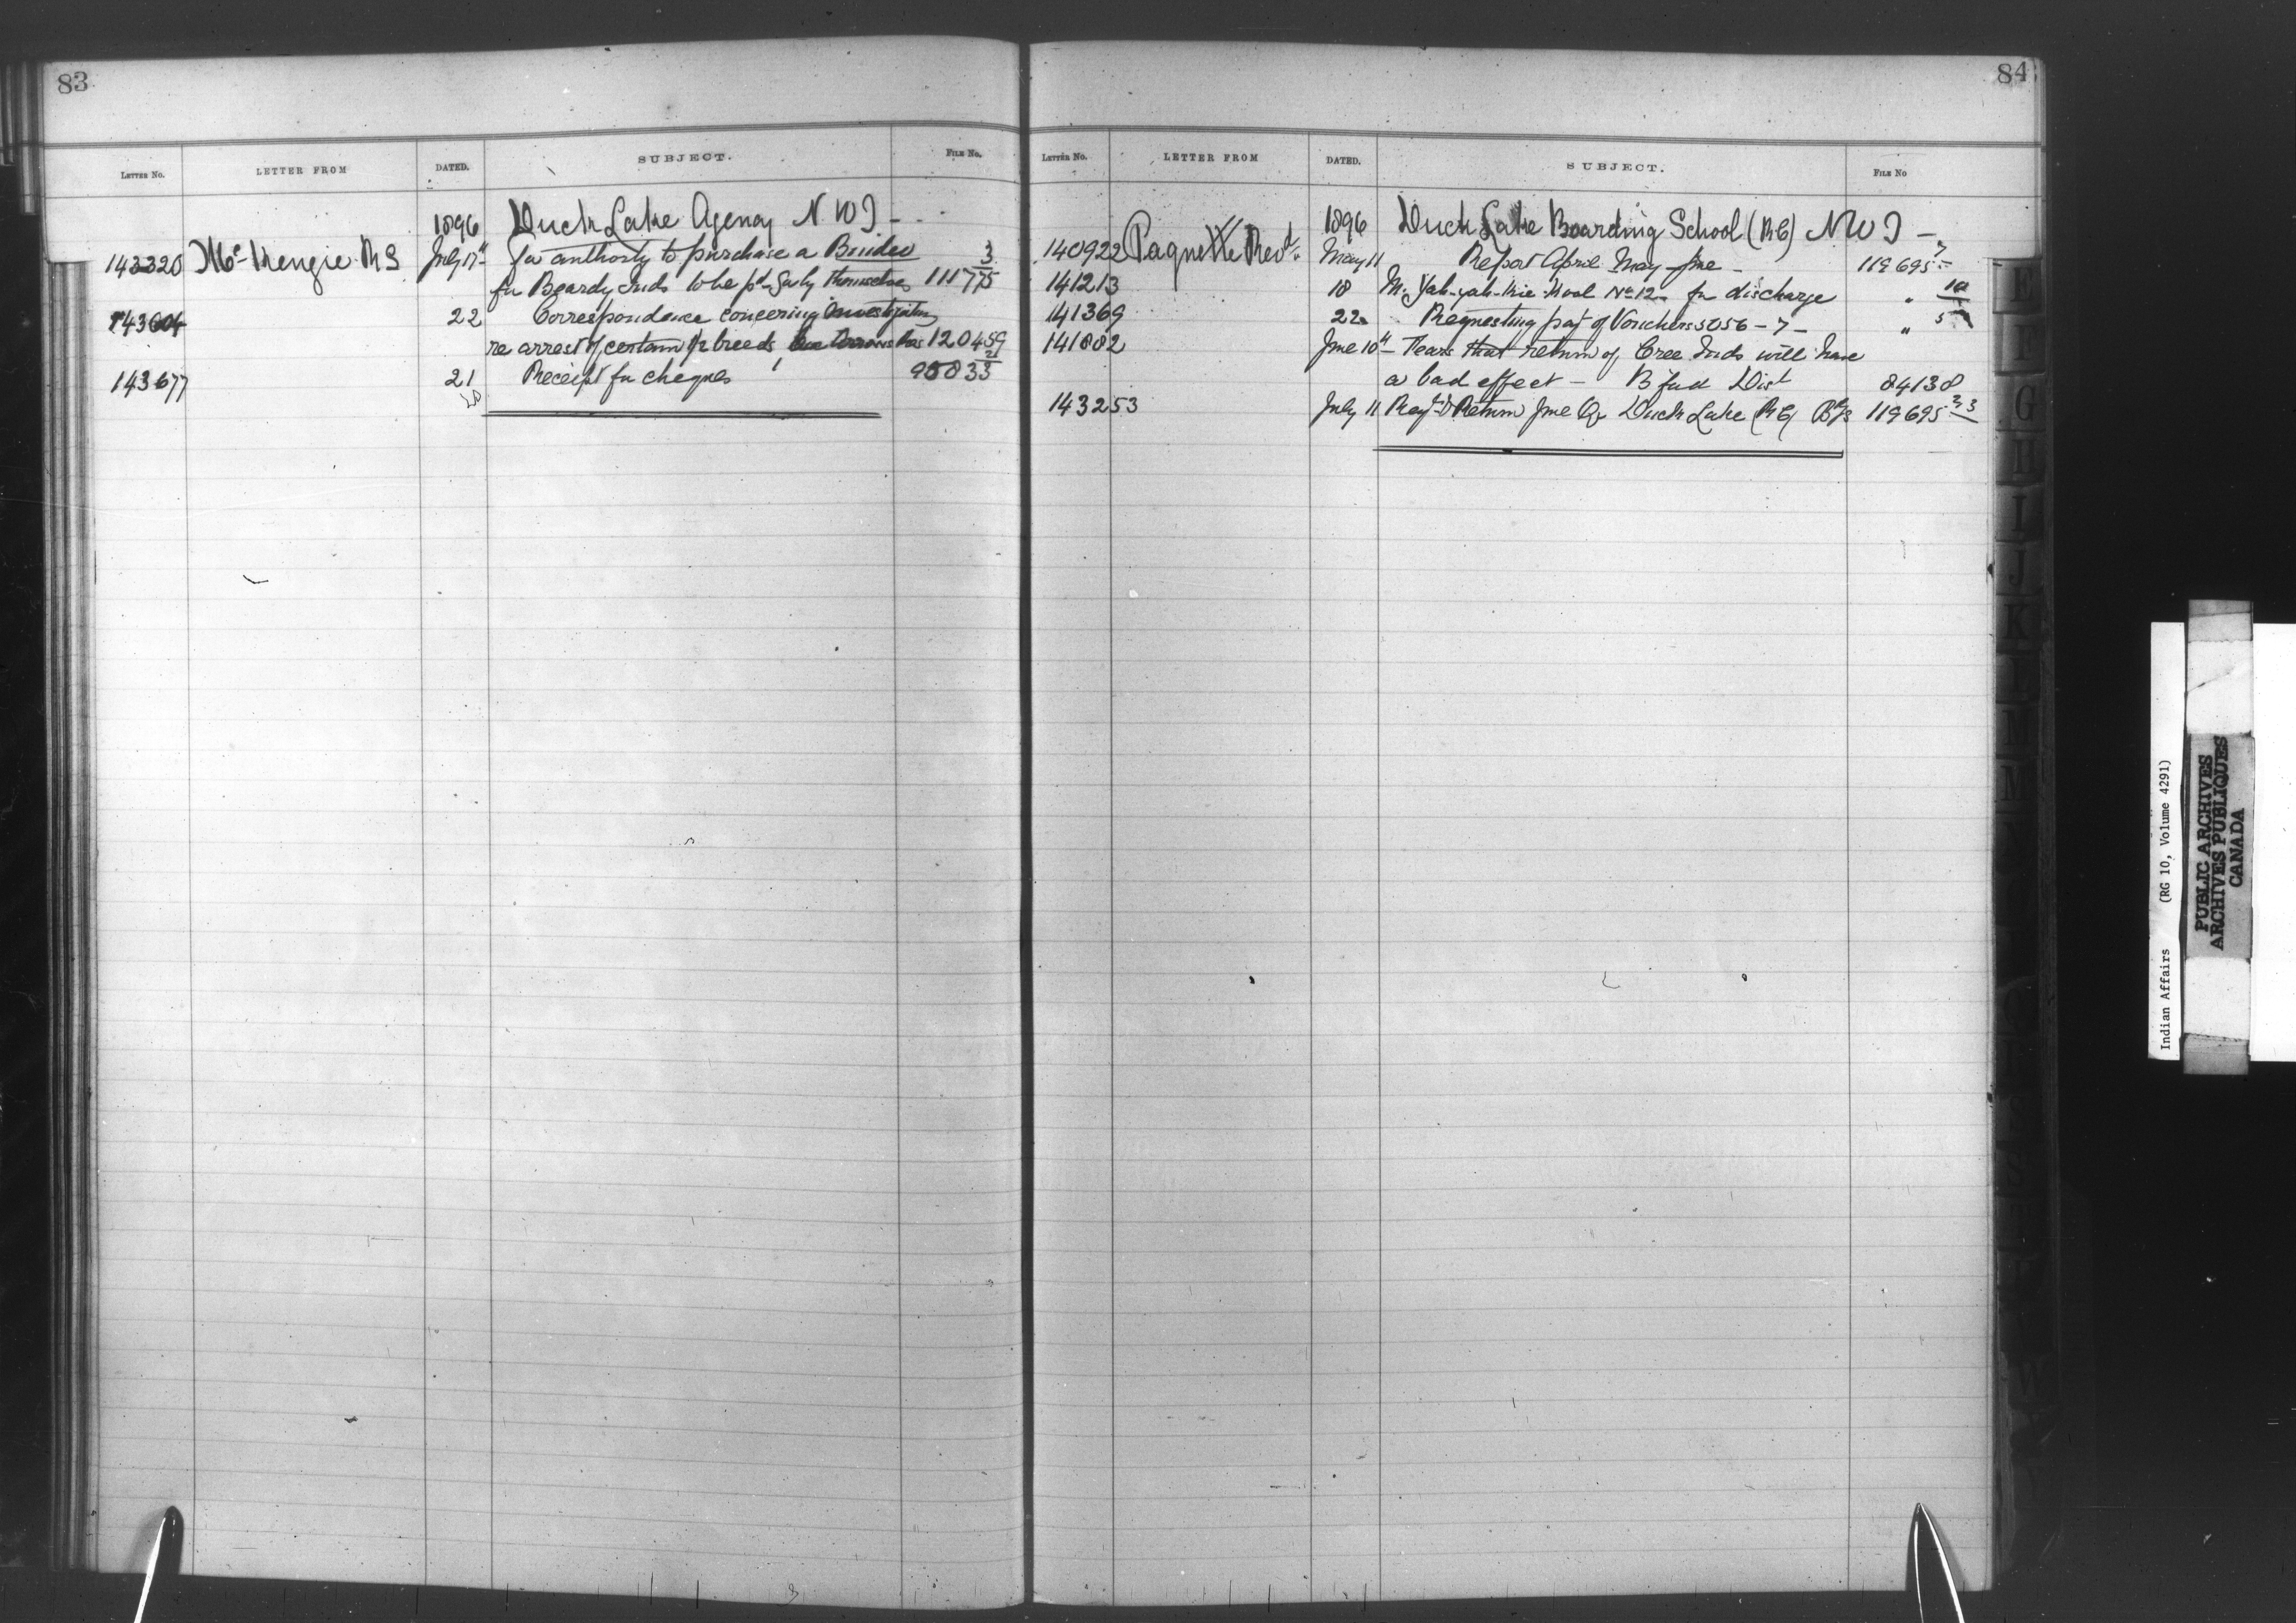 83
LETTER NO. LETTER FROM DATED. SUBJECT. FILE NO.
1896 Duck Lake Agency N.W.T -
143320 McKenzie R S July 17th For authority to purchase a Binder 3
for Beardy Inds to be pd for by themselves 111775
143604 22 Correspondence concerning investigation
re arrest of certain ½ breeds One Arrows Res 120459
143677 21 Receipt for cheques 95833 21
28
84
LETTER NO. LETTER FROM DATED. SUBJECT. FILE NO
1896 Duck Lake Boarding School (RC) NWT -
140922 Paquette Revd May 11 Report April May June - 119695 7
141213 18 for discharge " 10
141369 22 Requesting pay of Vouchers 5056 - 7 - " 5
141882 June 10th - Fears that return of Cree Inds will have
a bad effect - B'ford Dist 84138
143253 July 11 Return June Qr Duck Lake (RC) 119695
E
F
G
H
I
J
K
L
M
Indian Affairs (RG 10, Volume 4291)
PUBLIC ARCHIVES
ARCHIVES PUBLIQUES
CANADA